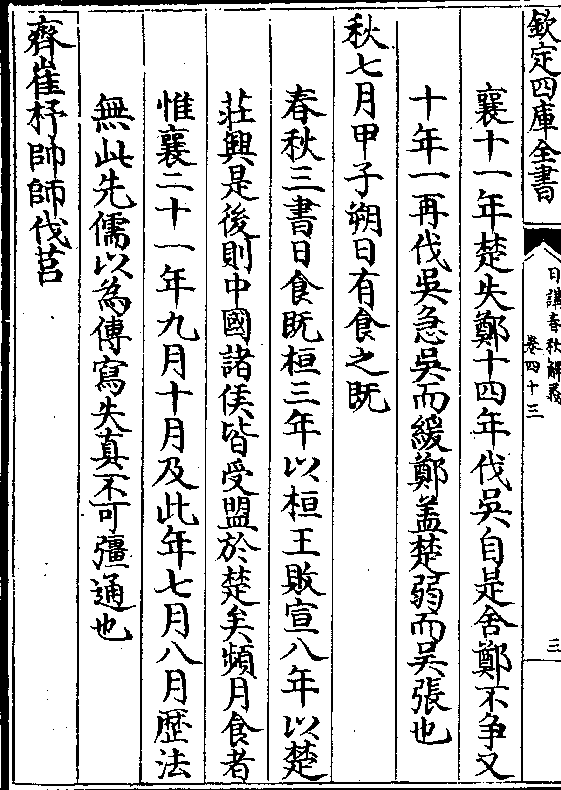 欽定四庫全書
日講春秋解義
卷四十三
三
襄十一年楚失鄭十四年伐吳自是舍鄭不争又
十年一再伐吳急吳而緩鄭盖楚弱而吳張也
秋七月甲子朔日有食之既
春秋三書日食既桓三年以桓王敗宣八年以楚
莊興是後則中國諸侯皆受盟於楚矣頻月食者
惟襄二十一年九月十月及此年七月八月歴法
無此先儒以為傳寫失真不可彊通也
齊崔杼帥師伐莒